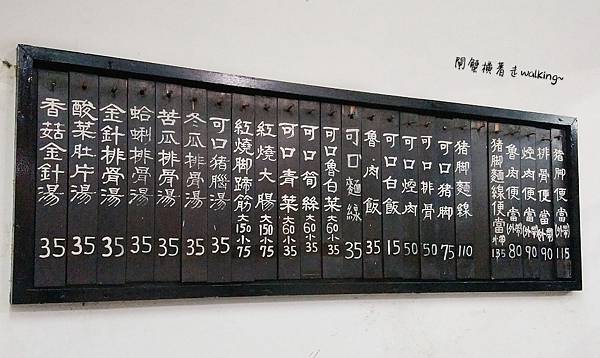 闖蟹橫著走walking~
豬脚便當(外帶)115
排骨便當(外帶)90
焢肉便當(外帶)90
魯肉便當(外帶)80
豬脚麵線便當外帶135
豬脚麵線110
可口豬脚75
可口排骨50
可口焢肉50
可口白飯15
魯肉飯35
可口麵線35
可口魯白菜大60小35
可口筍絲大60小35
可口青菜大60小35
紅燒大腸大150小75
紅燒脚蹄筋大150小75
可口豬腦湯35
冬瓜排骨湯35
苦瓜排骨湯35
蛤蜊排骨湯35
金針排骨湯35
酸菜肚片湯35
香菇金針湯35